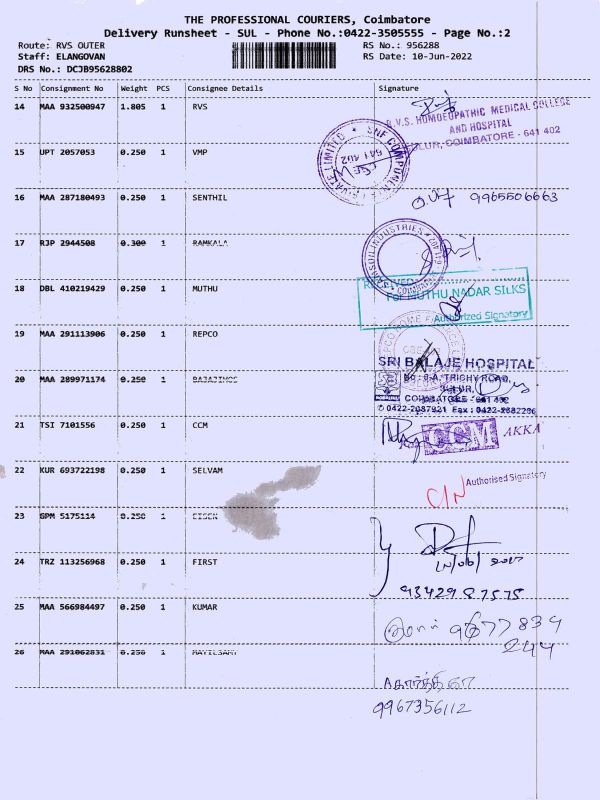 THE PROFESSIONAL COURIERS, Coimbatore
Delivery Runsheet - SUL - Phone No.:0422-3505555 - Page No.:2
Route: RVS OUTER RS No.: 956288
Staff: ELANGOVAN RS Date: 10-Jun-2022
DRS No.: DCJB95628802
S No Consignment No Weight PCS Consignee Details Signature
14 MAA 932500947 1.805 1 RVS
R.V.S. HOMOEOPATHIC MEDICAL COLLEGE
AND HOSPITAL
SULUR, COIMBATORE - 641 402
15 UPT 2057053 0.250 1 VMP
641 402
16 MAA 287180493 0.250 1 SENTHIL
9965506663
17 RJP 2944508 0.300 1 RAMKALA
18 DBL 410219429 0.250 1 MUTHU
RECEIVED
For MUTHU NADAR SILKS
Authorized Signatory
19 MAA 291113906 0.250 1 REPCO
SRI BALAJE HOSPITAL
20 MAA 289971174 0.250 1
TRICHY ROAD,
SULUR,
COIMBATORE - 641 402
21 TSI 7101556 0.250 1 CCM
CCM AKKA
22 KUR 693722198 0.250 1 SELVAM
Authorised Signatory
C/N
23 GPM 5175114 0.250 1
24 TRZ 113256968 0.250 1 FIRST
9342987575
25 MAA 566984497 0.250 1 KUMAR
9677839
244
26 MAA 291062831 0.250 1 MAYILSAMY
9967356112